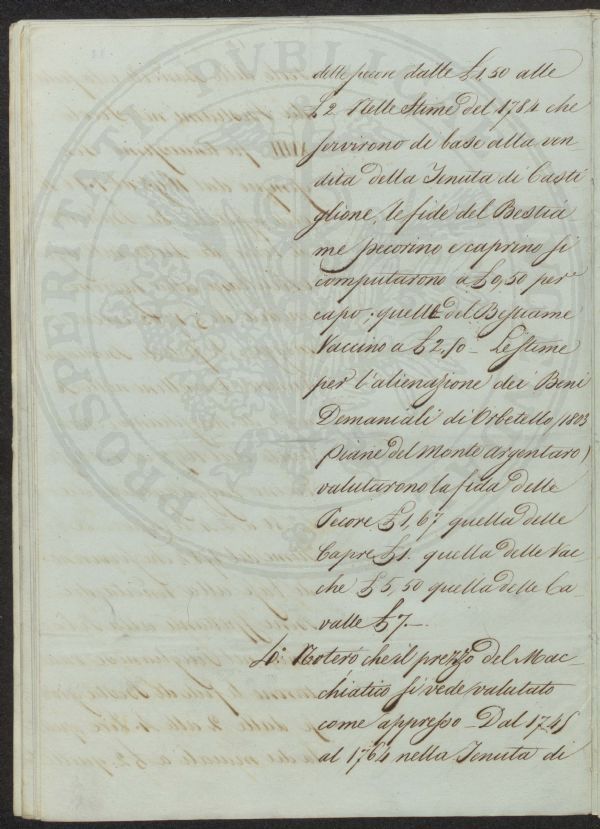 delle pecore dalle £1,50 alle
£2. Nelle Stime del 1784 che
servirono di base alla ven-
dita della Tenuta di Casti
glione, le fide del Bestia
me pecorino e caprino si
computarono a £0,50 per
capo. quelle del Bestiame
Vaccino a £2,50 - Le Stime
per l'alienazione dei Beni
Demaniali di Orbetello (1803
Piani del Monte Argentaro)
valutarono la fida delle
Pecore £1,67 quella delle
Capre £1. quella delle Vac-
che £5,50 quella delle Ca-
valle £7.—
4.° Noterò che il prezzo del Mac-
chiatico si vede valutato
come appresso - Dal 1745
al 1764 nella Tenuta di
PROSPERITATI PVBLICAE